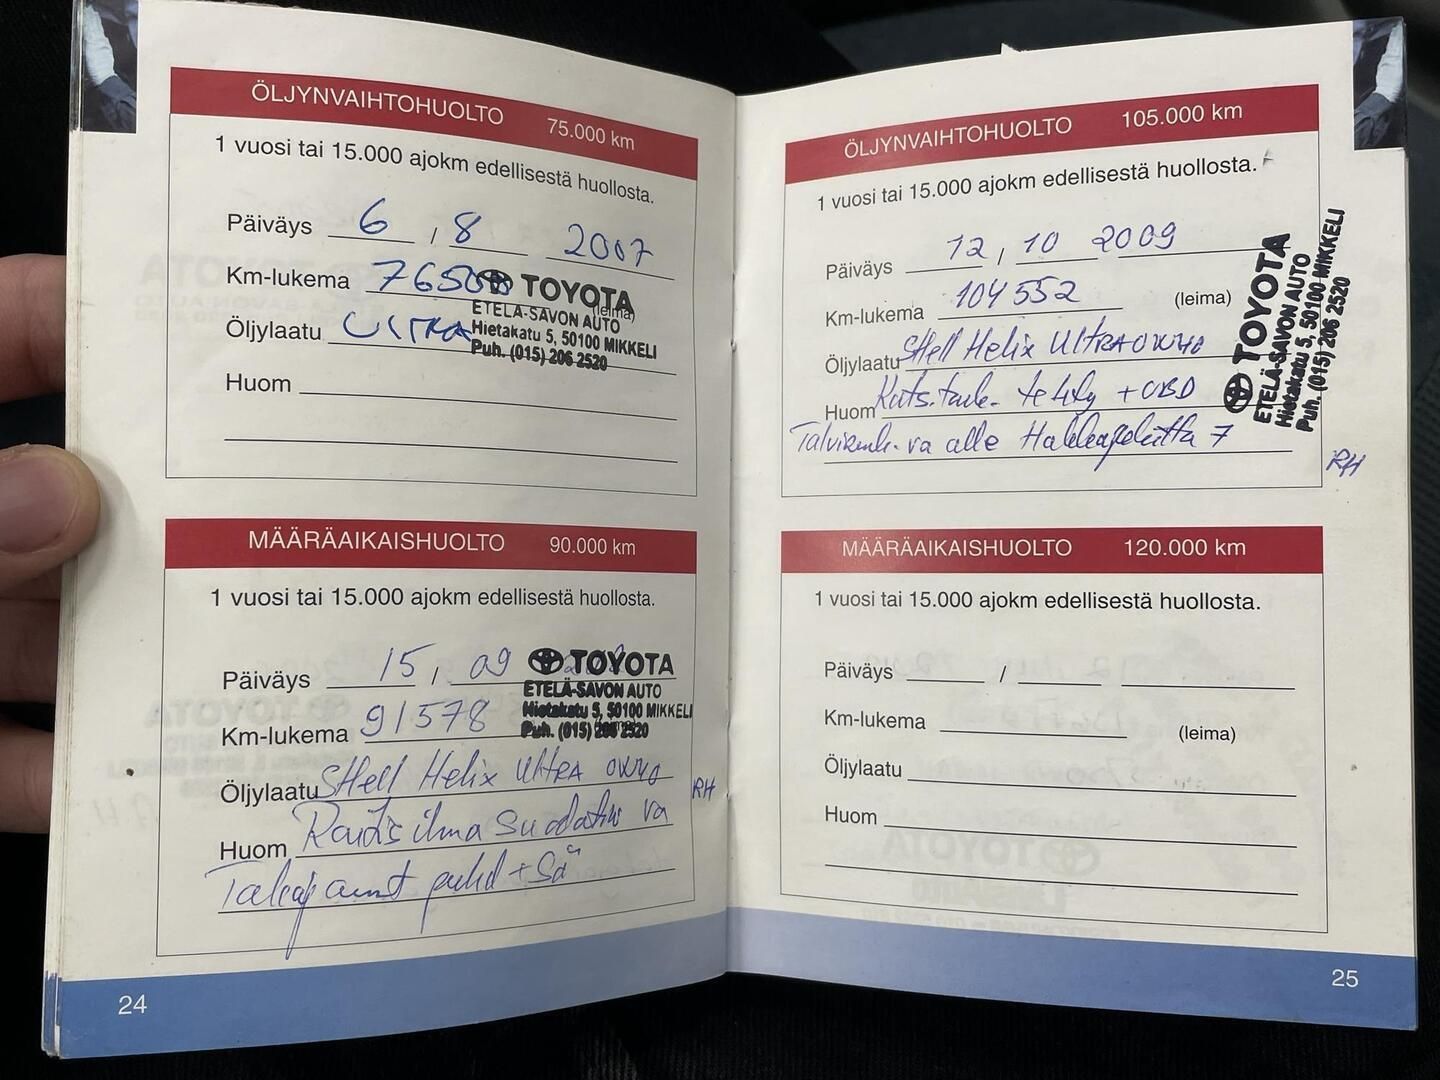 ÖLJYNVAIHTOHUOLTO 75.000 km
1 vuosi tai 15.000 ajokm edellisestä huollosta.
Päiväys 6 , 8 2007
Km-lukema 7650
(leima)
Öljylaatu ULTRA
Huom
TOYOTA
ETELÄ-SAVON AUTO
Hietakatu 5, 50100 MIKKELI
Puh. (015) 206 2520
MÄÄRÄAIKAISHUOLTO 90.000 km
1 vuosi tai 15.000 ajokm edellisestä huollosta.
Päiväys 15 , 09
Km-lukema 91578
TOYOTA
ETELÄ-SAVON AUTO
Hietakatu 5, 50100 MIKKELI
Puh. (015) 206 2520
Öljylaatu SHell Helix Ultra 0W40
RH
Huom Raitis ilma suodatin va
Takaj puhd + Sä
24
ÖLJYNVAIHTOHUOLTO 105.000 km
1 vuosi tai 15.000 ajokm edellisestä huollosta.
Päiväys 12 , 10 2009
Km-lukema 104552 (leima)
Öljylaatu SHell Helix Ultra 0W40
Huom Kats.tark. tehty + OBD
Talvirenk. va alle Hakkapeliitta 7
RH
TOYOTA
ETELÄ-SAVON AUTO
Hietakatu 5, 50100 MIKKELI
Puh. (015) 206 2520
MÄÄRÄAIKAISHUOLTO 120.000 km
1 vuosi tai 15.000 ajokm edellisestä huollosta.
Päiväys /
Km-lukema (leima)
Öljylaatu
Huom
25